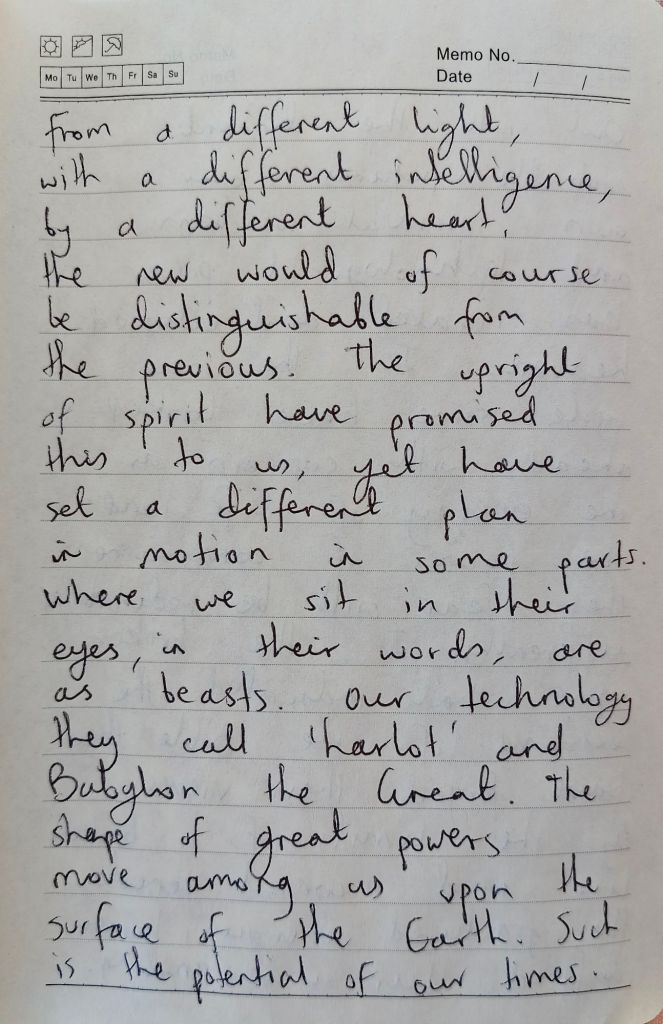 Memo No.
Mo Tu We Th Fr Sa Su
Date / /
from a different light,
with a different intelligence,
by a different heart,
the new would of course
be distinguishable from
the previous. The upright
of spirit have promised
this to us, yet have
set a different plan
in motion in some parts.
where we sit in their
eyes, in their words, are
as beasts. Our technology
they call 'harlot' and
Babylon the Great. The
shape of great powers
move among us upon the
surface of the Earth. Such
is the potential of our times.